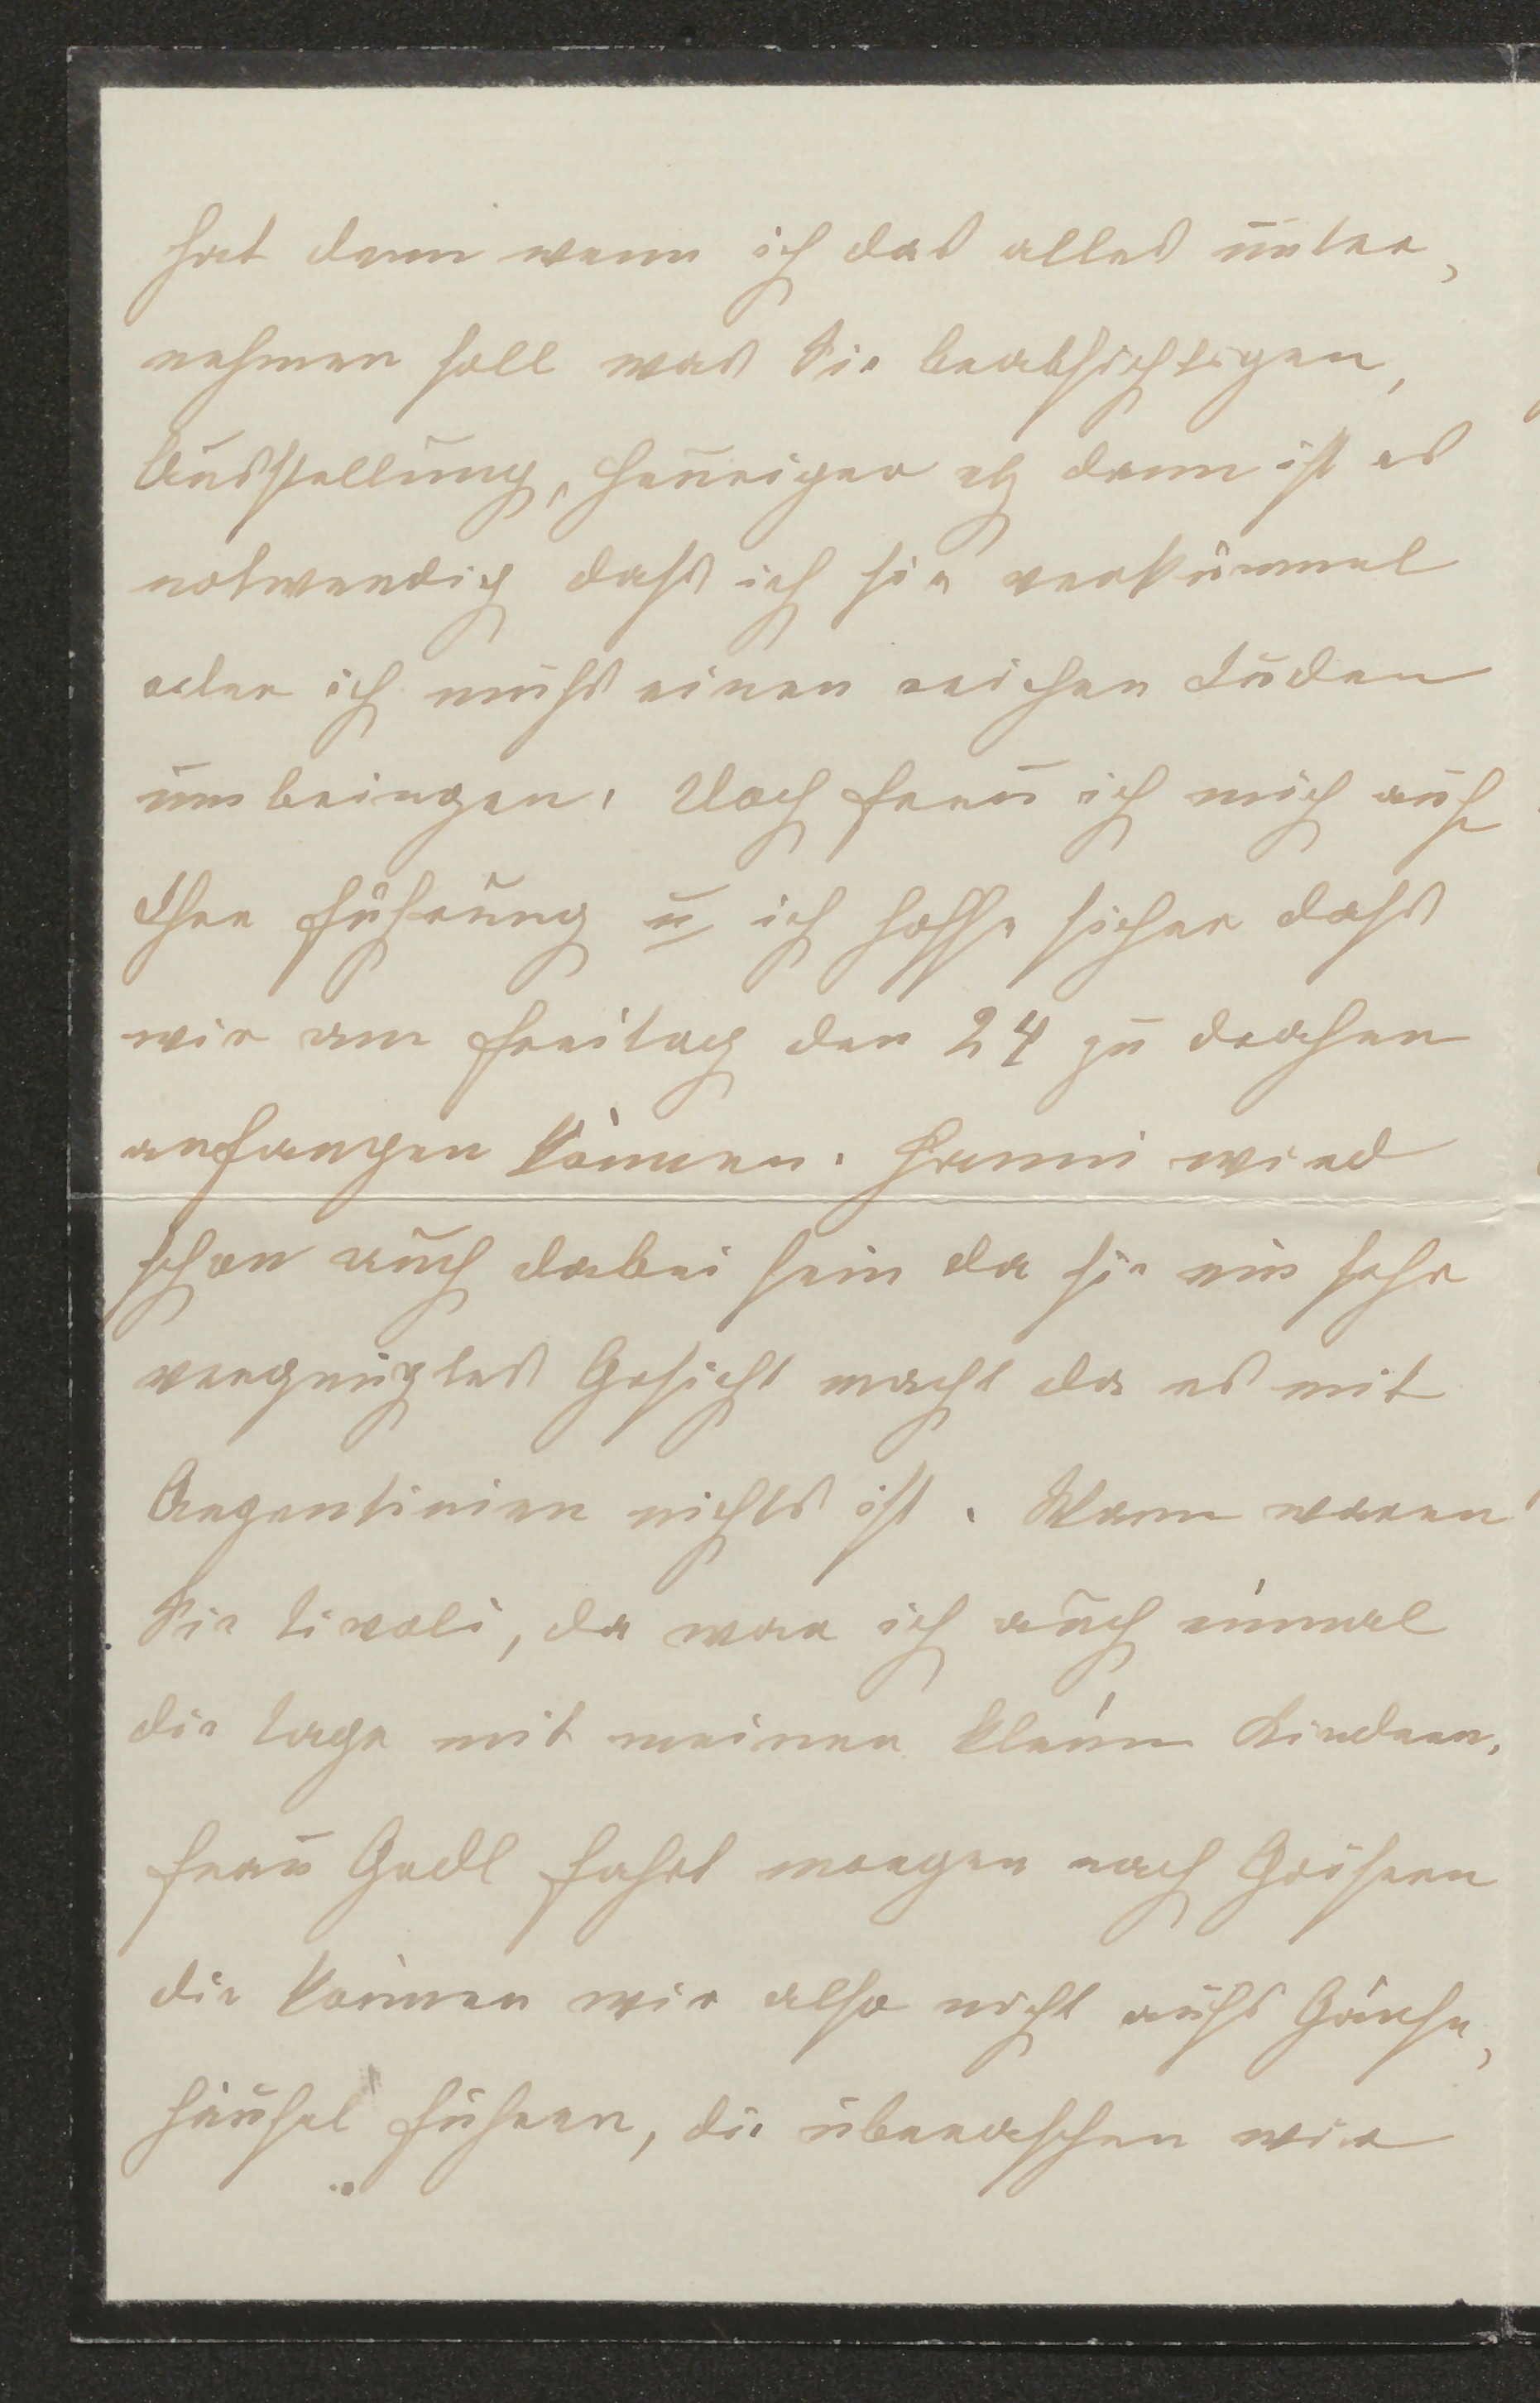 hat denn wenn ich das alles unter,
nehmen soll was Sie beabsichtigen,
Ausstellung, Heuriger etz dann ist es
notwendig dass ich sie verkümmel
oder ich muss einen reichen Juden
umbringen. Doch freu ich mich auf
Ihre Führung u ich hoffe sicher dass
wir am Freitag den 24 zu drahen
anfangen können. Hanni wird
schon auch dabei sein da sie ein sehr
vergnügtes Gesicht macht da es mit
Argentinien nichts ist. Wann waren
Sie Tivoli, da war ich auch einmal
die Tage mit meinen kleinen Kindern.
Frau Godl fahrt morgen nach
die können wir also nicht aufs Gänse,
häufel führen, die überraschen wir